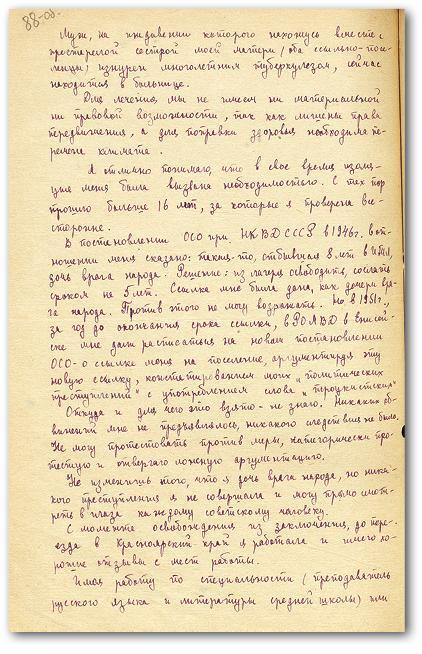 88-об.
Муж, на иждивении которого нахожусь вместе с
престарелой сестрой моей матери (оба ссыльно-посе-
ленцы) изнурен многолетним туберкулезом, сейчас
находится в больнице.
Для лечения мы не имеем ни материальной
ни правовой возможности, так как лишены права
передвижения, а для поправки здоровья необходима пе-
ремена климата.
Я отлично понимаю, что в свое время изоля-
ция меня была вызвана необходимостью. С тех пор
прошло больше 16 лет, за которые я проверена все-
сторонне.
В постановлении ОСО при НКВД СССР в 1946г. в от-
ношении меня сказано: такая-то, отбывшая 8 лет в ИТЛ,
дочь врага народа. Решение: из лагеря освободить, сослать
сроком на 5 лет. Ссылка мне была дана, как дочери вра-
га народа. Против этого не могу возражать. Но в 1951г.,
за год до окончания срока ссылки, в РОМВД в Енисей-
ске мне дали расписаться на новом постановлении
ОСО - о ссылке меня на поселение, аргументируя эту
новую ссылку, констатированием моих "политических
преступлений" с употреблением слова "троцкистская"
Откуда и для чего это взято - не знаю. Никаких об-
винений мне не предъявлялось, никакого следствия не было.
Не могу протестовать против меры, категорически про-
тестую и отвергаю ложную аргументацию.
Не изменишь того, что я дочь врага народа, но ника-
кого преступления я не совершала и могу прямо смот-
реть в глаза каждому советскому человеку.
С момента освобождения из заключения, до пере-
езда в Красноярский край я работала и имею хо-
рошие отзывы с мест работы.
Имея работу по специальности (преподаватель
русского языка и литературы средней школы) или